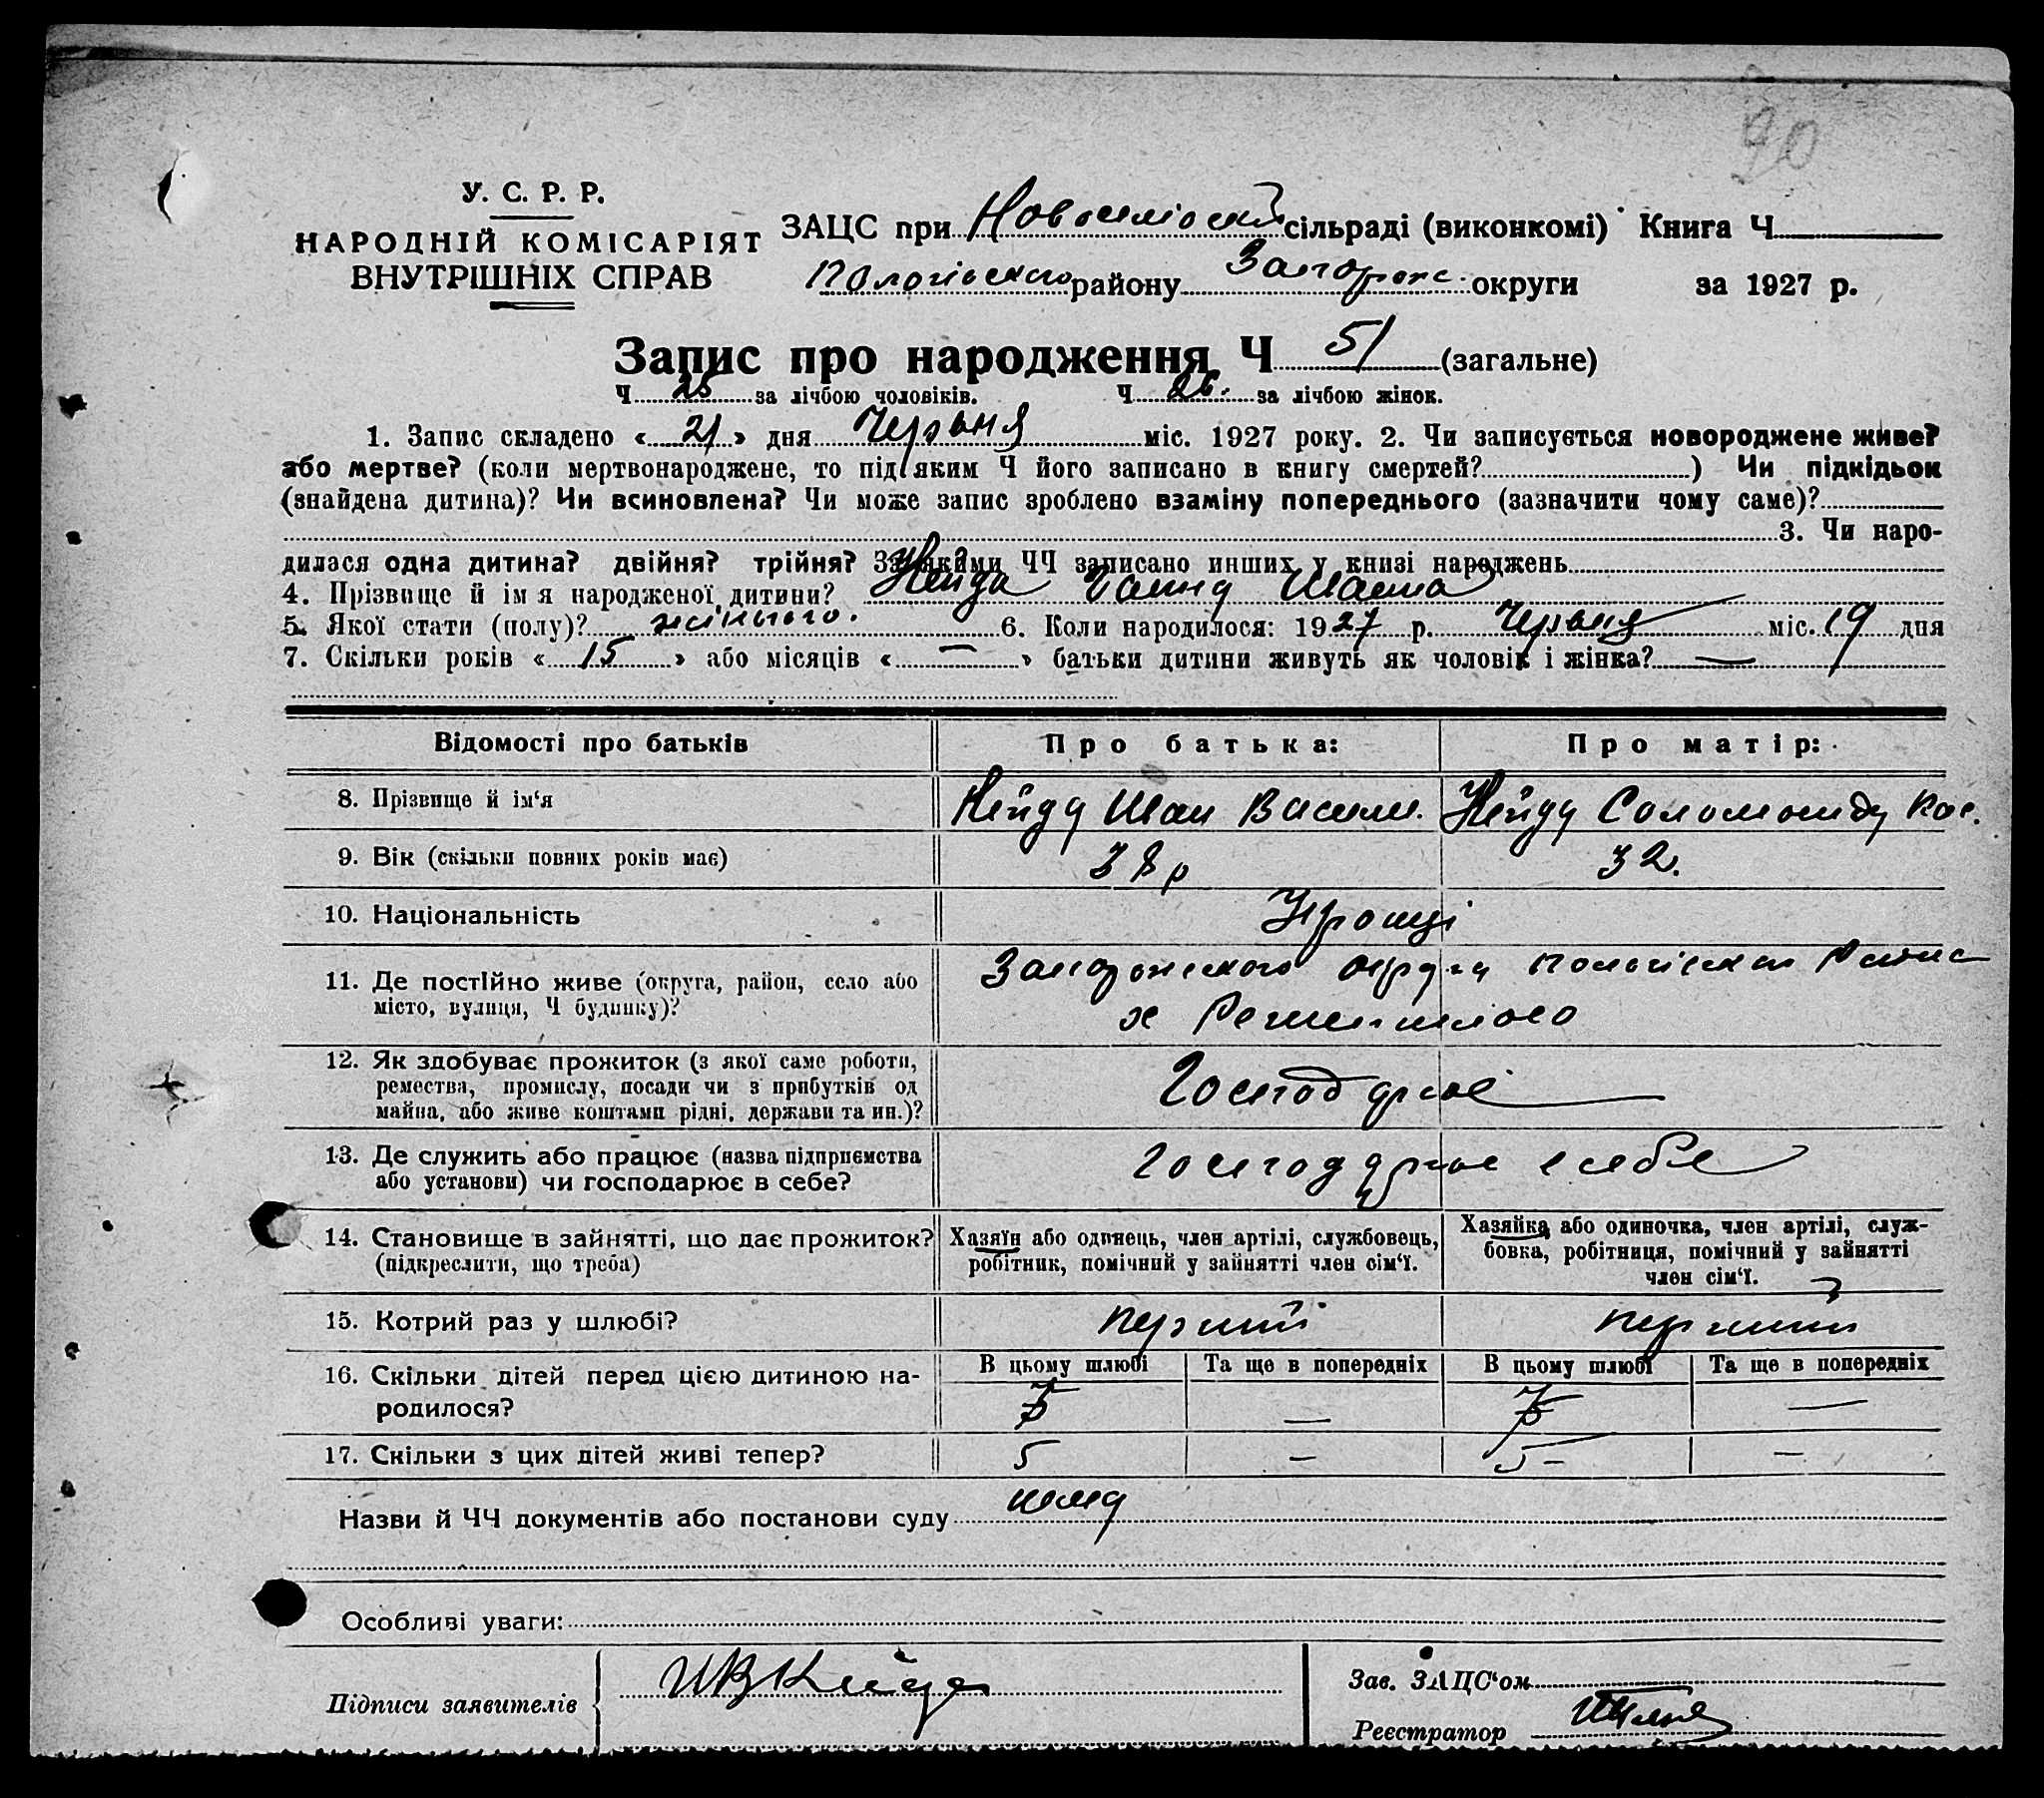 90
У. С. Р. Р.
НАРОДНІЙ КОМІСАРІЯТ
ВНУТРІШНІХ СПРАВ
ЗАЦС при сільраді (виконкомі) Книга Ч
району Запорожс округи за 1927 р.
Запис про народження Ч 51 (загальне)
Ч 25 за лічбою чоловіків. Ч 26. за лічбою жінок.
1. Запис складено « 21 » дня Червня міс. 1927 року. 2. Чи записується новороджене живе?
або мертве? (коли мертвонароджене, то під яким Ч його записано в книгу смертей? ) Чи підкідьок
(знайдена дитина)? Чи всиновлена? Чи може запис зроблено взаміну попереднього (зазначити чому саме)?
3. Чи наро-
дилася одна дитина? двійня? трійня? За якими ЧЧ записано инших у книзі народжень
4. Прізвище й ім я народженої дитини?
5. Якої стати (полу)? жіночого. 6. Коли народилося: 1927 р. Червня міс. 19 дня
7. Скільки років « 15 » або місяців « — » батьки дитини живуть як чоловік і жінка? —
Відомості про батьків Про батька: Про матір:
8. Прізвище й ім‘я Іван Васили. Соломониду
9. Вік (скільки повних років має) 38 р 32.
10. Національність Украінці
11. Де постійно живе (округа, район, село або
місто, вулиця, Ч будинку)? Запорожського округи
х
12. Як здобуває прожиток (з якої саме роботи,
ремества, промислу, посади чи з прибутків од
майна, або живе коштами рідні, держави та ин.)? Господарює
13. Де служить або працює (назва підприємства
або установи) чи господарює в себе? Господарює в себе
14. Становище в зайнятті, що дає прожиток?
(підкреслити, що треба)
Хазяїн або одинець, член артілі, службовець,
робітник, помічний у зайнятті член сім‘ї.
Хазяйка або одиночка, член артілі, служ-
бовка, робітниця, помічний у зайнятті
член сім‘ї.
15. Котрий раз у шлюбі? перший перший
16. Скільки дітей перед цією дитиною на-
родилося?
В цьому шлюбі Та ще в попередніх В цьому шлюбі Та ще в попередніх
— —
17. Скільки з цих дітей живі тепер? 5 — 5 — —
Назви й ЧЧ документів або постанови суду
Особливі уваги:
Підписи заявителів
Зав. ЗАЦС‘ом
Реєстратор